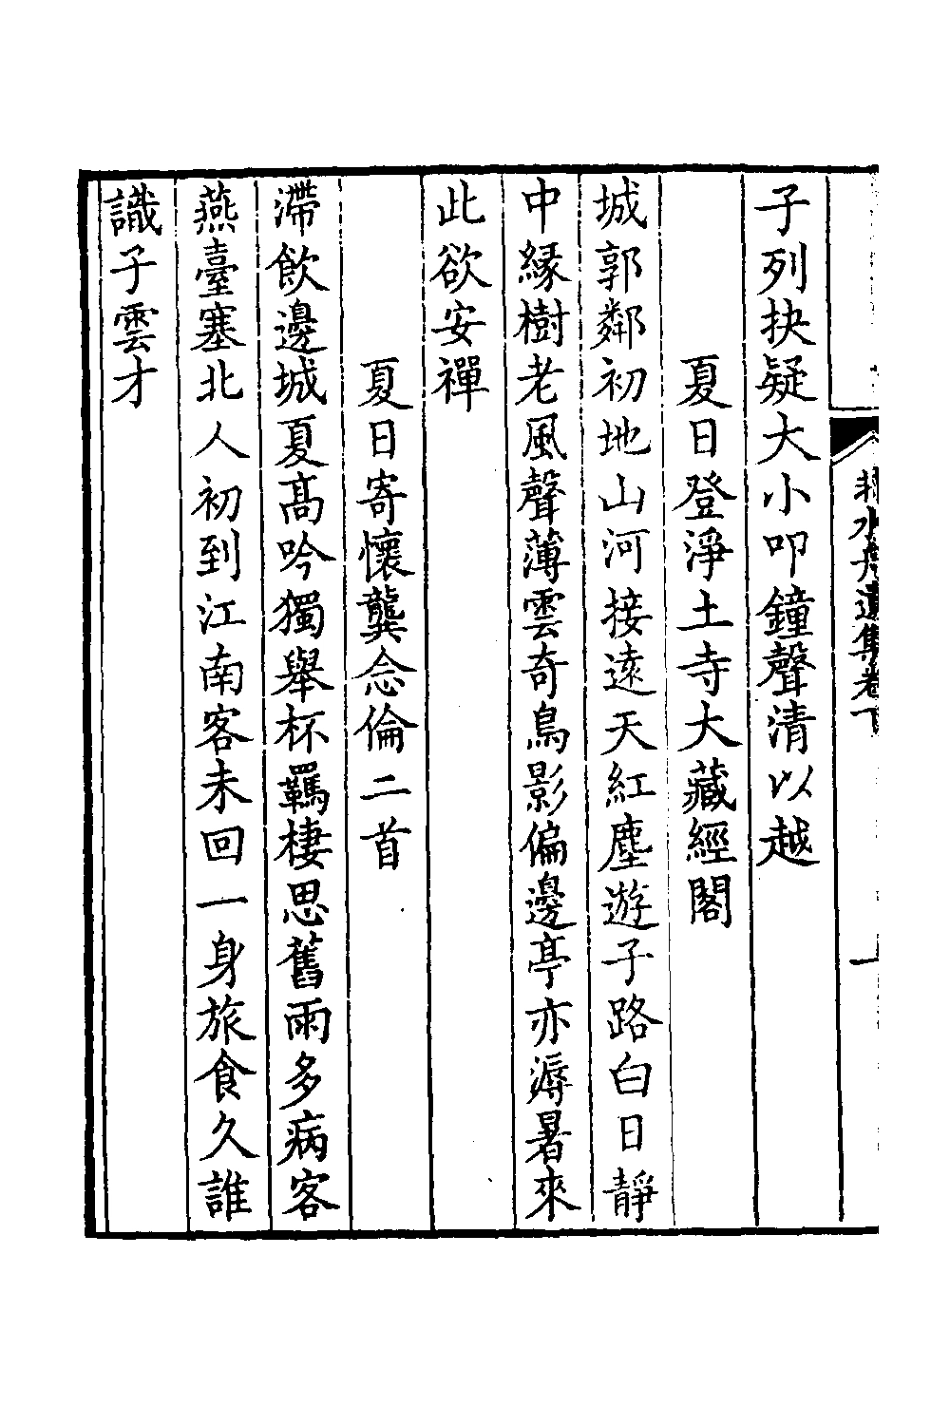 子列抉疑大小叩鐘聲清以越
夏日登淨土寺大藏經閣
城郭鄰初地山河接遠天紅塵遊子路白日靜
中緣樹老風聲薄雲奇鳥影偏邊亭亦溽暑來
此欲安禪
夏日寄懷龔念倫二首
滯飲邊城夏高吟獨舉杯羈棲思舊雨多病客
燕臺塞北人初到江南客未回一身旅食久誰
識子雲才
水舟遺集卷下